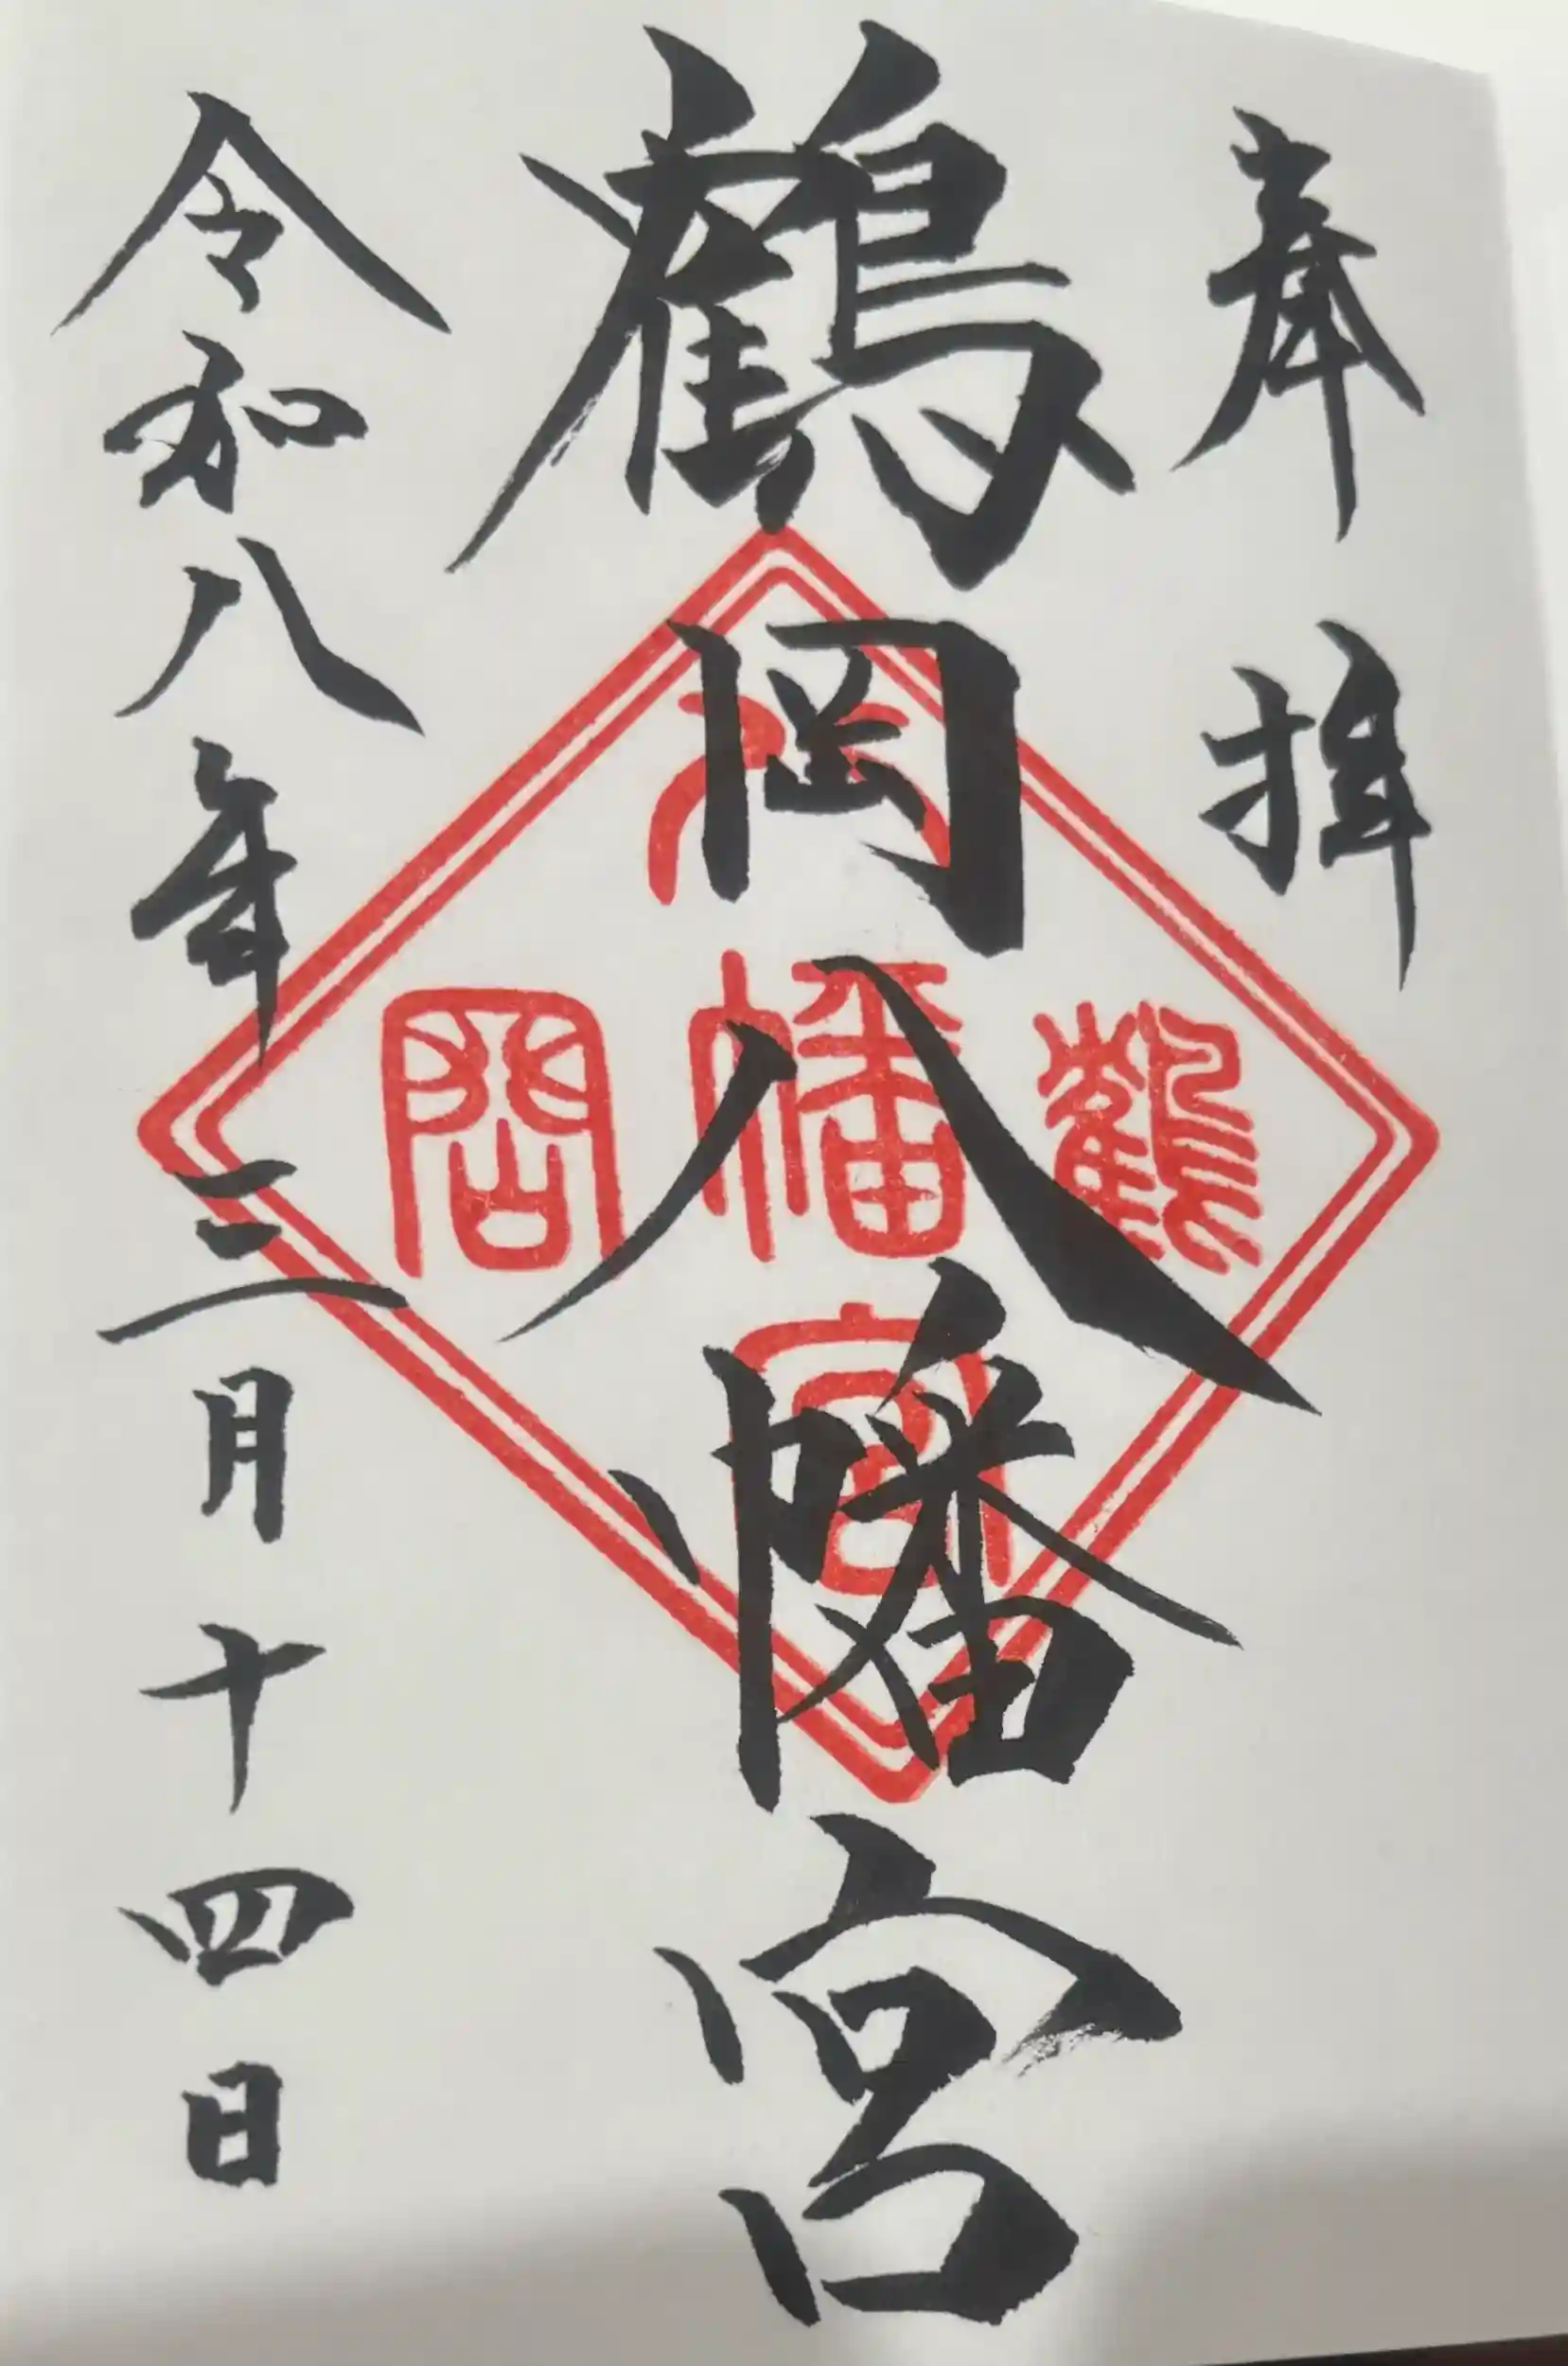 奉拝
鶴岡八幡宮
令和八年三月十四日
鶴
岡
八
幡
宮